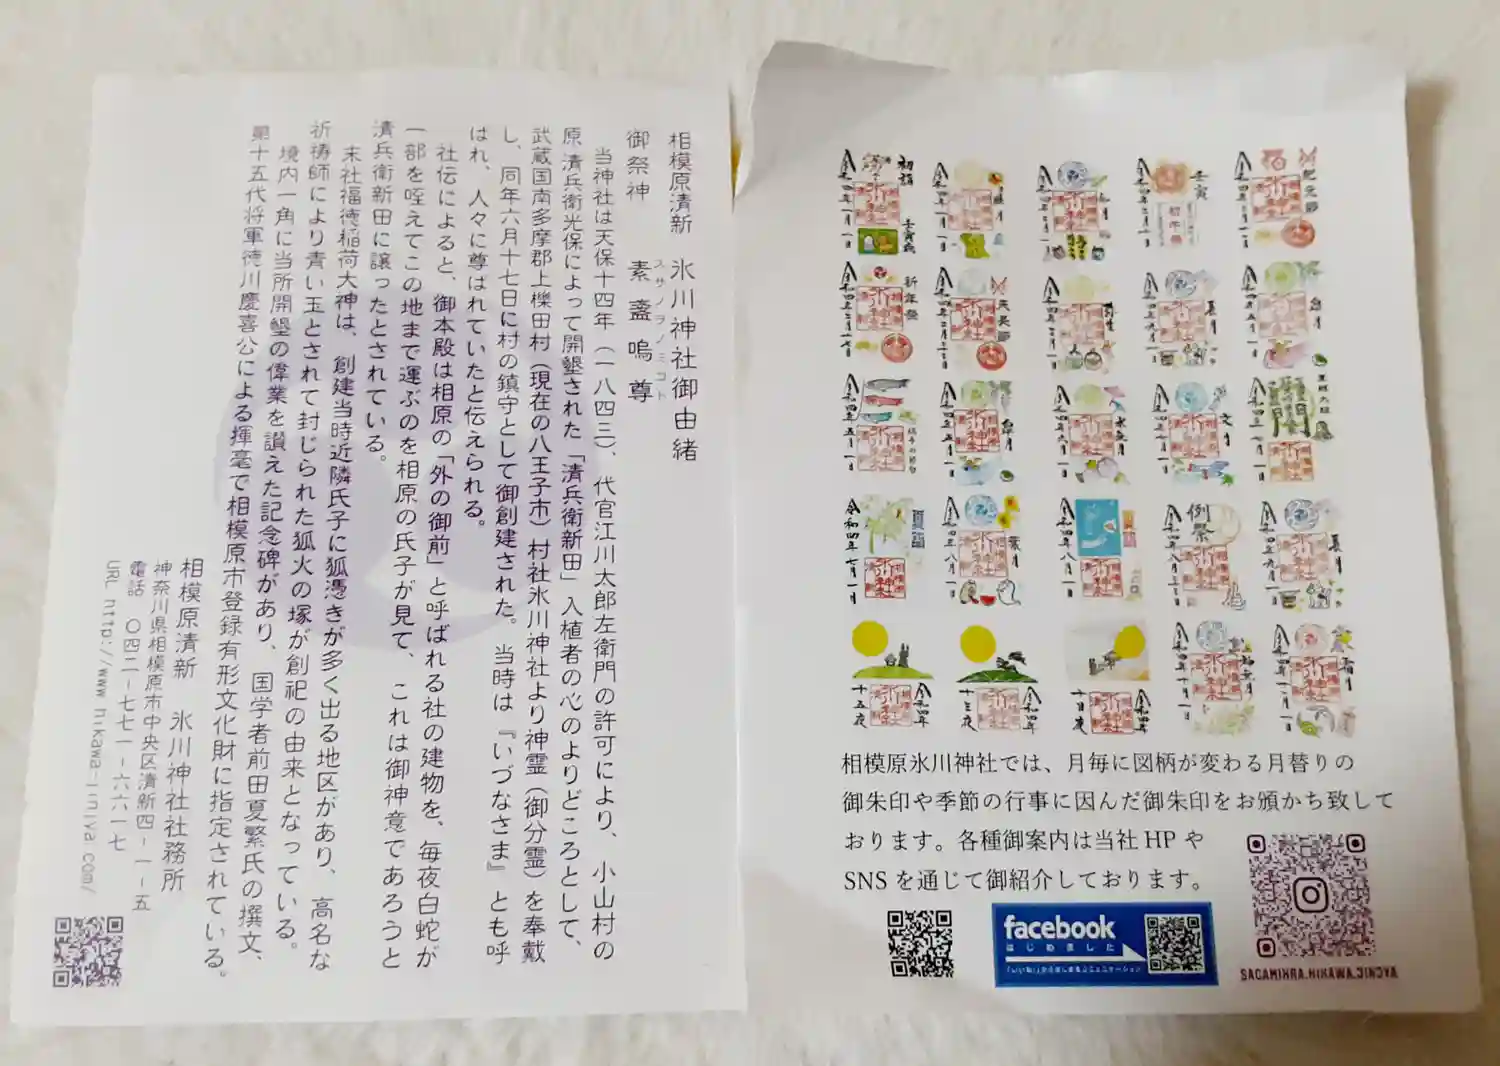 相模原清新　氷川神社御由緒
御祭神　素盞嗚尊
スサノヲノミコト
当神社は天保十四年（一八四三）、代官江川太郎左衛門の許可により、小山村の
原清兵衛光保によって開墾された「清兵衛新田」入植者の心のよりどころとして、
武蔵国南多摩郡上椚田村（現在の八王子市）村社氷川神社より神霊（御分霊）を奉戴
し、同年六月十七日に村の鎮守として御創建された。当時は『いづなさま』とも呼
はれ、人々に尊ばれていたと伝えられる。
社伝によると、御本殿は相原の「外の御前」と呼ばれる社の建物を、毎夜白蛇が
一部を咥えてこの地まで運ぶのを相原の氏子が見て、これは御神意であろうと
清兵衛新田に譲ったとされている。
末社福徳稲荷大神は、創建当時近隣氏子に狐憑きが多く出る地区があり、高名な
祈祷師により青い玉とされて封じられた狐火の塚が創祀の由来となっている。
境内一角に当所開墾の偉業を讃えた記念碑があり、国学者前田夏繁氏の撰文、
第十五代将軍徳川慶喜公による揮毫で相模原市登録有形文化財に指定されている。
相模原清新　氷川神社社務所
神奈川県相模原市中央区清新四－一－五
電話　〇四二－七七一－六六一七
URL http://www.hikawa-jinjya.com/
初詣
令和四年一月一日
壬寅歳
令和四年二月一日
壬寅
初午祭
紀元節
新年祭
令和四年二月十七日
天長節
弥生
皐月
令和四年五月一日
端午の節句
水無月
令和四年六月一日
文月
令和四年七月一日
夏詣
令和四年七月一日
葉月
令和四年八月一日
令和四年八月一日
例祭
長月
令和四年九月一日
十五夜
令和四年
十三夜
令和四年
十日夜
令和四年
神無月
令和四年十月一日
霜月
相模原氷川神社では、月毎に図柄が変わる月替りの
御朱印や季節の行事に因んだ御朱印をお頒かち致して
おります。各種御案内は当社 HP や
SNS を通じて御紹介しております。
facebook
はじめました
SAGAMIHRA.HIKAWA.JINJYA